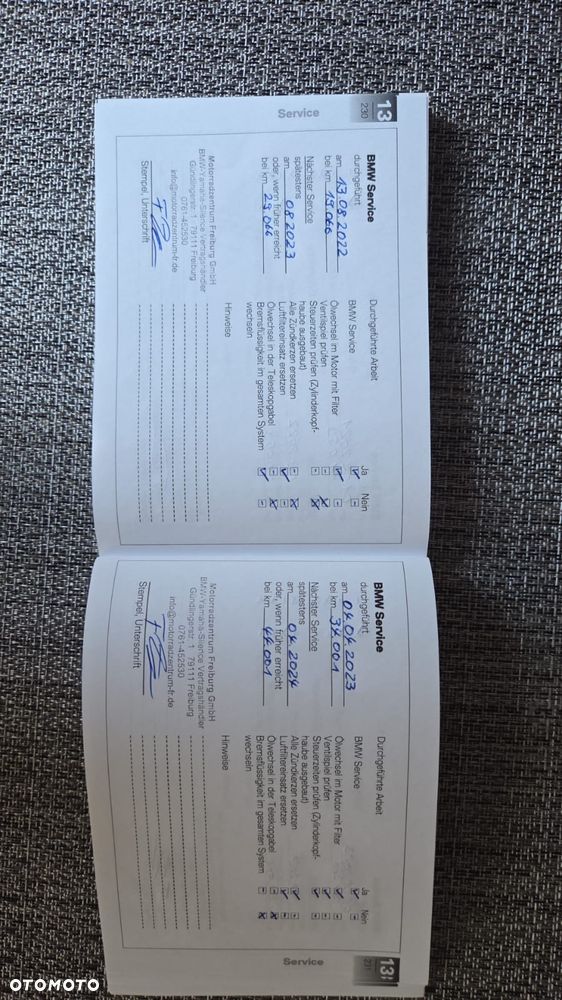 13
230
Service
BMW Service
durchgeführt
am 13.08.2022
bei km 19.066
Nächster Service
spätestens
am 08.2023
oder, wenn früher erreicht
bei km 29.066
Motorradzentrum Freiburg GmbH
BMW-Yamaha-Silence Vertragshändler
Gündlingerstr. 1 79111 Freiburg
0761-452530
info@motorradzentrum-fr.de
Stempel, Unterschrift
Durchgeführte Arbeit
Ja Nein
BMW Service
Ölwechsel im Motor mit Filter
Ventilspiel prüfen
Steuerzeiten prüfen (Zylinderkopf-
haube ausgebaut)
Alle Zündkerzen ersetzen
Luftfiltereinsatz ersetzen
Ölwechsel in der Teleskopgabel
Bremsflüssigkeit im gesamten System
wechseln
Hinweise
13
231
Service
BMW Service
durchgeführt
am 04.04.2023
bei km 34.001
Nächster Service
spätestens
am 04.2024
oder, wenn früher erreicht
bei km 44.001
Motorradzentrum Freiburg GmbH
BMW-Yamaha-Silence Vertragshändler
Gündlingerstr. 1 79111 Freiburg
0761-452530
info@motorradzentrum-fr.de
Stempel, Unterschrift
Durchgeführte Arbeit
Ja Nein
BMW Service
Ölwechsel im Motor mit Filter
Ventilspiel prüfen
Steuerzeiten prüfen (Zylinderkopf-
haube ausgebaut)
Alle Zündkerzen ersetzen
Luftfiltereinsatz ersetzen
Ölwechsel in der Teleskopgabel
Bremsflüssigkeit im gesamten System
wechseln
Hinweise
OTOMOTO